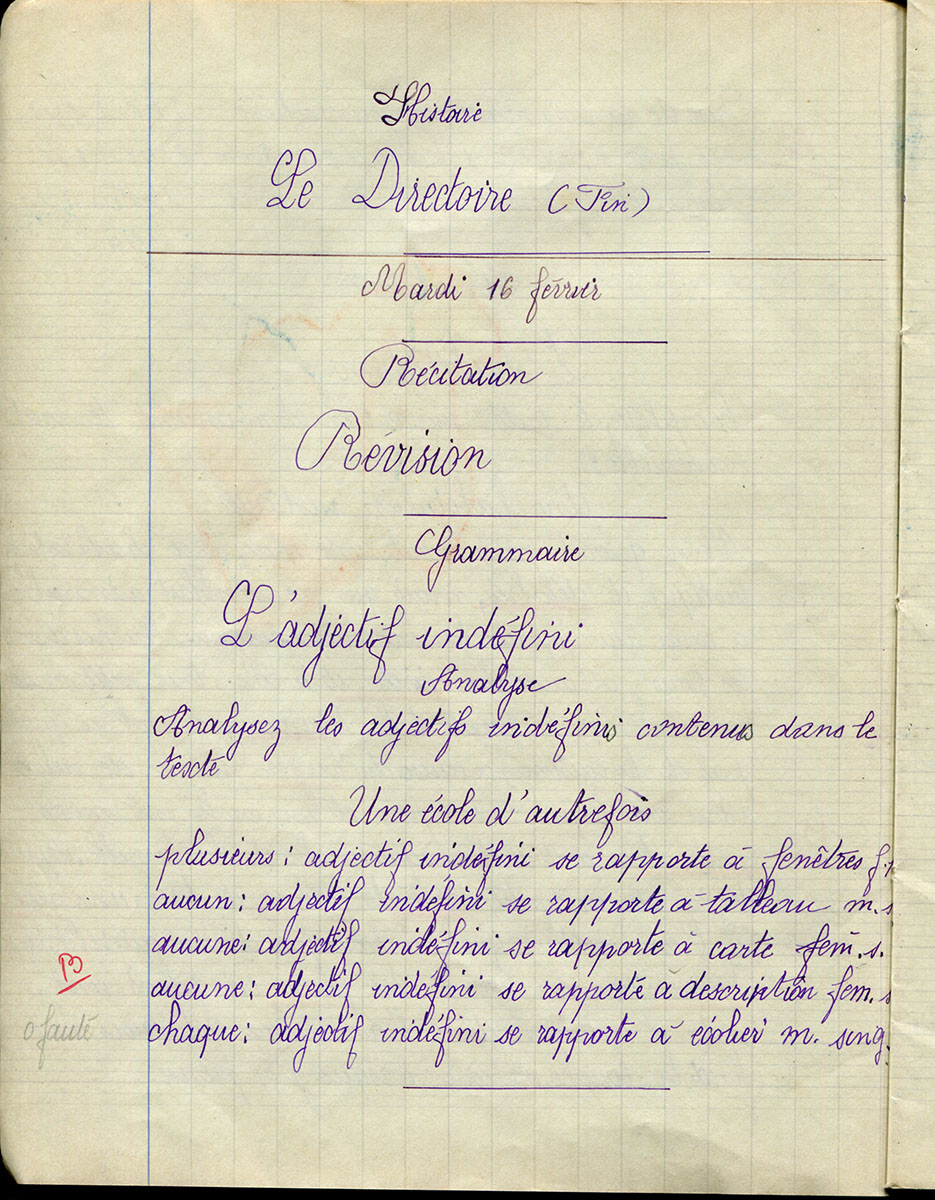 Histoire
Le Directoire (Fin)
Mardi 16 février
Récitation
Révision
Grammaire
L'adjectif indéfini
Analyse
Analysez les adjectifs indéfinis contenus dans le
texte
Une école d'autrefois
plusieurs : adjectif indéfini se rapporte à fenêtres f.p
aucun : adjectif indéfini se rapporte à tableau m.s
aucune : adjectif indéfini se rapporte à carte fém. s.
B
aucune : adjectif indéfini se rapporte à description fem. s
0 faute
chaque : adjectif indéfini se rapporte à écolier m. sing.